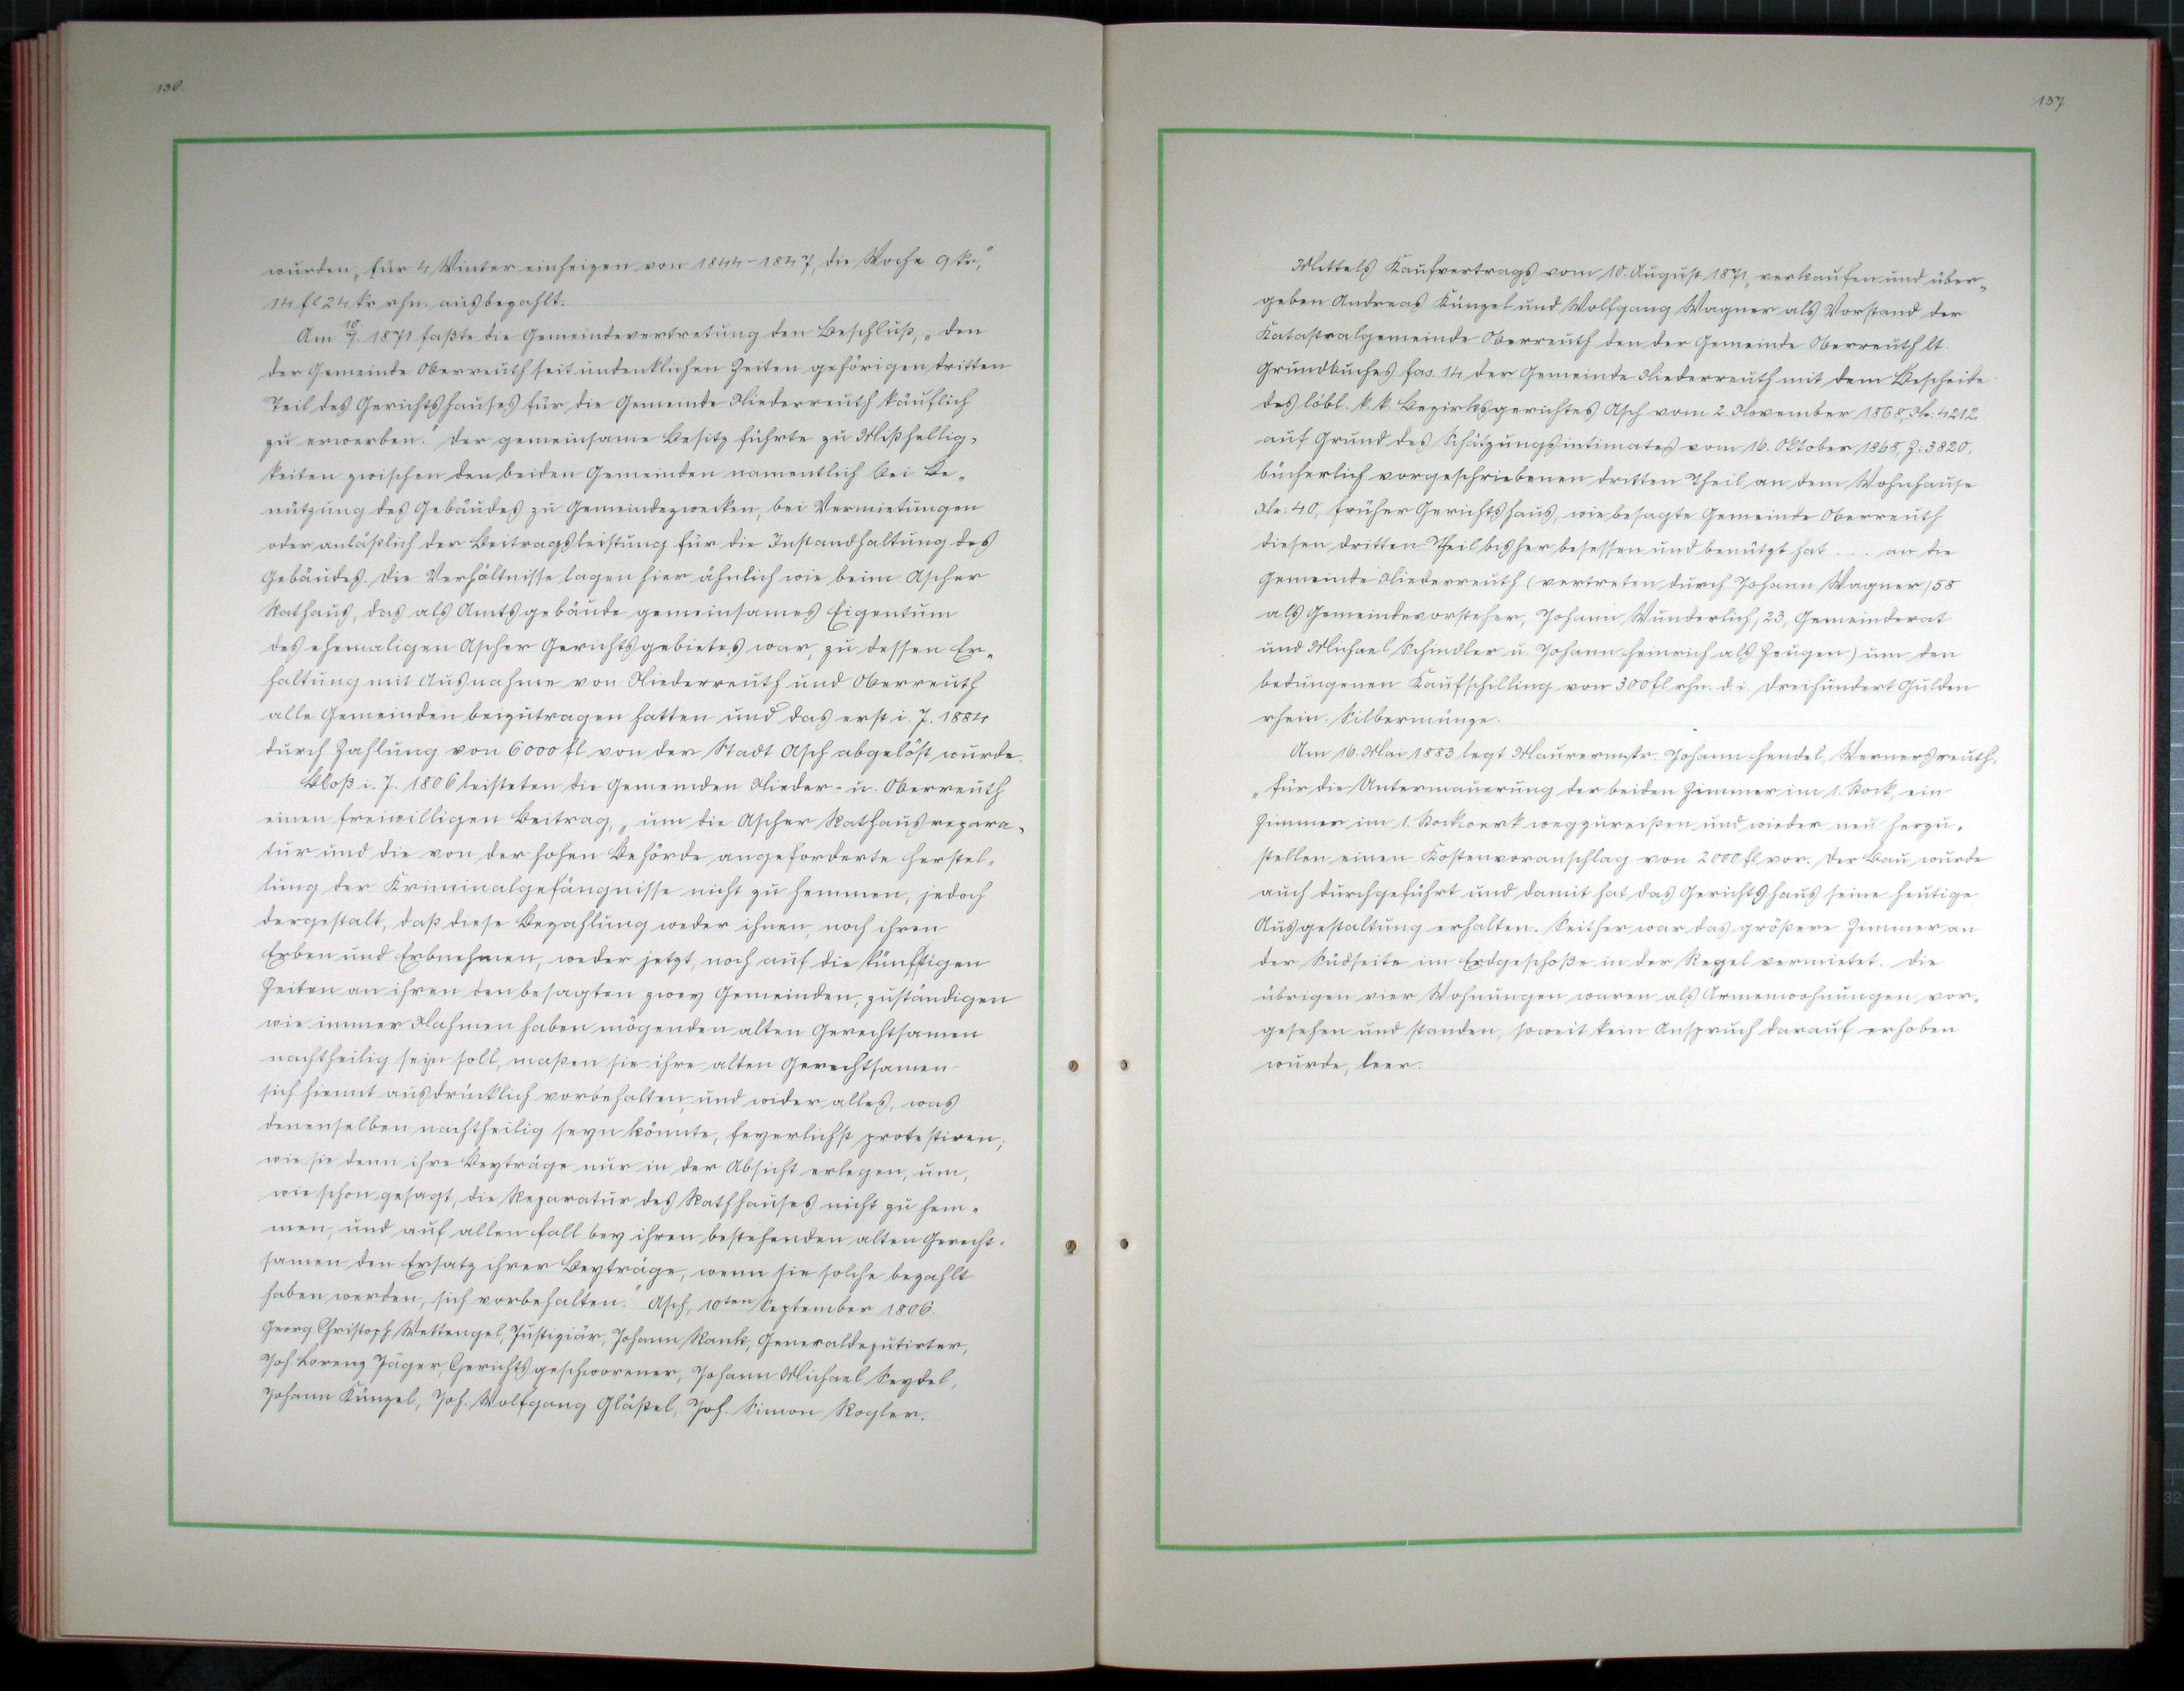 136.
wurden „für 4 Winter einheizen von 1844-1847, die Woche 9 kr,"
14 fl 24 kr rhn. ausbezahlt.
Am 10/7. 1871 faßte die Gemeindevertretung den Beschluß, „den
der Gemeinde Oberreuth seit undenklichen Zeiten gehörigen dritten
Teil des Gerichtshauses für die Gemeinde Niederreuth käuflich
zu erwerben." Der gemeinsame Besitz führte zu Mißhellig-
keiten zwischen den beiden Gemeinden namentlich bei Be-
nützung des Gebäudes zu Gemeindezwecken, bei Vermietungen
oder anläßlich der Beitragsleistung für die Instandhaltung des
Gebäudes. Die Verhältnisse lagen hier ähnlich wie beim Ascher
Rathaus, das als Amtsgebäude gemeinsames Eigentum
des ehemaligen Ascher Gerichtsgebietes war, zu dessen Er-
haltung mit Ausnahme von Niederreuth und Oberreuth
alle Gemeinden beizutragen hatten und das erst i. J. 1884
durch Zahlung von 6000 fl von der Stadt Asch abgelöst wurde.
Bloß i. J. 1806 leisteten die Gemeinden Nieder- u. Oberreuth
einen freiwilligen Beitrag, „um die Ascher Rathausrepara-
tur und die von der hohen Behörde angeforderte Herstel-
lung der Kriminalgefängnisse nicht zu hemmen, jedoch
dergestalt, daß diese Bezahlung weder ihnen, noch ihren
Erben und Erbnehmen, weder jetzt, noch auf die künftigen
Zeiten an ihren den besagten zwey Gemeinden, zuständigen
wie immer Nahmen haben mögenden alten Gerechtsamen
nachtheilig seyn soll, maßen sie ihre alten Gerechtsamen
sich hiemit ausdrücklich vorbehalten, und wider alles, was
denenselben nachtheilig seyn könnte, feyerlichst protestiren;
wie sie denn ihre Beyträge nur in der Absicht erlegen, um,
wie schon gesagt, die Reparatur des Rathhauses nicht zu hem-
men, und auf allen Fall bey ihren bestehenden alten Gerecht-
samen den Ersatz ihrer Beyträge, wenn sie solche bezahlt
haben werden, sich vorbehalten." Asch, 10ten September 1806.
Georg Christoph Wettengel, Justiziär, Johann Rank, Generaldeputirter,
Joh. Lorenz Jäger, Gerichtsgeschworener, Johann Michael Seydel,
Johann Künzel, Joh. Wolfgang Gläßel, Joh. Simon Rogler.
137.
Mittels Kaufvertrags vom 10. August 1871 „verkaufen und über-
geben Andreas Künzel und Wolfgang Wagner als Vorstand der
Katastralgemeinde Oberreuth den der Gemeinde Oberreuth lt.
Grundbuches fas. 14 der Gemeinde Niederreuth mit dem Bescheide
des löbl. k. k. Bezirksgerichtes Asch vom 2. November 1868, Nr: 4212
auf Grund des Schätzungsintimates vom 16. Oktober 1868, Z: 3820,
bücherlich vorgeschriebenen dritten Theil an dem Wohnhause
Nr: 40, früher Gerichtshaus, wie besagte Gemeinde Oberreuth
diesen dritten Theil bisher besessen und benützt hat .... an die
Gemeinde Niederreuth (vertreten durch Johann Wagner/58
als Gemeindevorsteher, Johann Wunderlich, 23, Gemeinderat
und Michael Schindler u. Johann Heinrich als Zeugen) um den
bedungenen Kaufschilling von 300 fl rhn. d. i. dreihundert Gulden
rhein. Silbermünze.
Am 16. Mai 1883 legt Maurermstr. Johann Hendel, Wernersreuth,
„für die Untermauerung der beiden Zimmer im 1. Stock, ein
Zimmer im 1. Stockwerk wegzureißen und wieder neu herzu-
stellen einen Kostenvoranschlag von 2000 fl vor. Der Bau wurde
auch durchgeführt und damit hat das Gerichtshaus seine heutige
Ausgestaltung erhalten. Seither war das größere Zimmer an
der Südseite im Erdgeschoße in der Regel vermietet. Die
übrigen vier Wohnungen waren als Armenwohnungen vor-
gesehen und standen, soweit kein Anspruch darauf erhoben
wurde, leer.
32